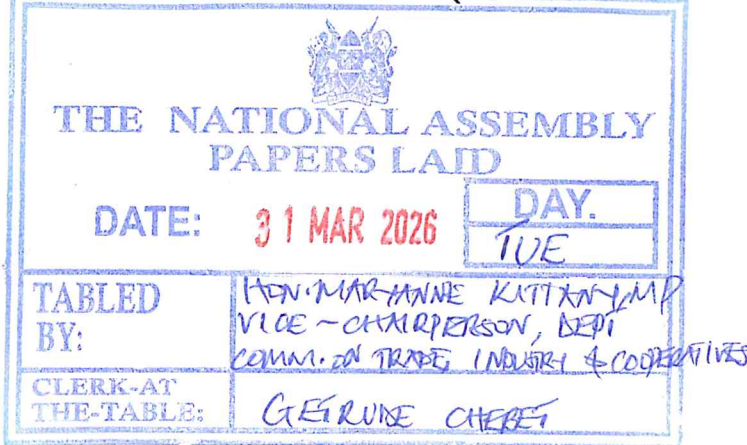 THE NATIONAL ASSEMBLY
PAPERS LAID
DATE: 31 MAR 2026
DAY.
TUE
TABLED BY:
HON. MARIANNE KITTANY, MP
VICE - CHAIRPERSON, DEPT
COMM. ON TRADE INDUSTRY & COOPERATIVES
CLERK-AT
THE-TABLE:
GETRUDE CHEBET